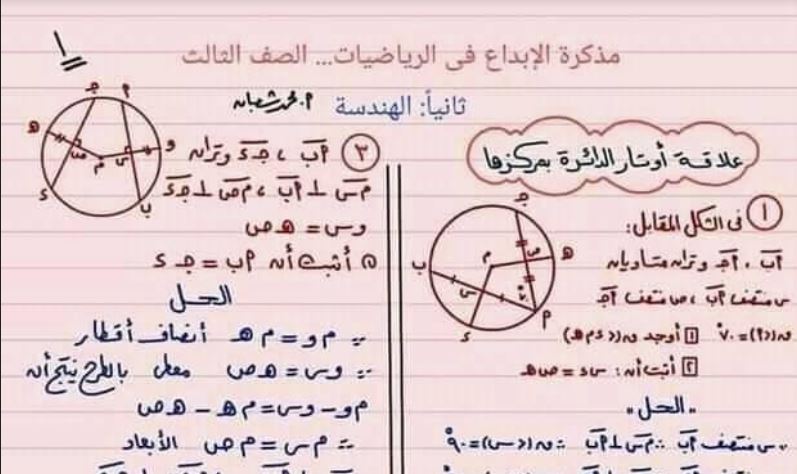 ١
مذكرة الإبداع فى الرياضيات... الصف الثالث
ثانياً: الهندسة
أ. محمد شعبان
علاقة أوتار الدائرة بمركزها
١ فى الشكل المقابل:
أب ، أجـ وتران متساويان
س منتصف أب ، ص منتصف أجـ
ق(أ) = ٧٠° ١ أوجد ق(د م هـ)
٢ أثبت أن: س د = ص هـ
"الحل"
∵ س منتصف أب ∴ م س ⊥ أب ∴ ق(س) = ٩٠°
جـ
هـ
ص
م
ب
س
د
أ
٧٠°
٣ أب ، جـ د وتران
م س ⊥ أب ، م ص ⊥ جـ د
و س = هـ ص
أثبت أن أب = جـ د
الحل
∵ م و = م هـ أنصاف أقطار
∵ و س = هـ ص معطى بالطرح ينتج أن
م و - و س = م هـ - هـ ص
∴ م س = م ص الأبعاد
جـ
أ
هـ
و
ص
س
م
د
ب